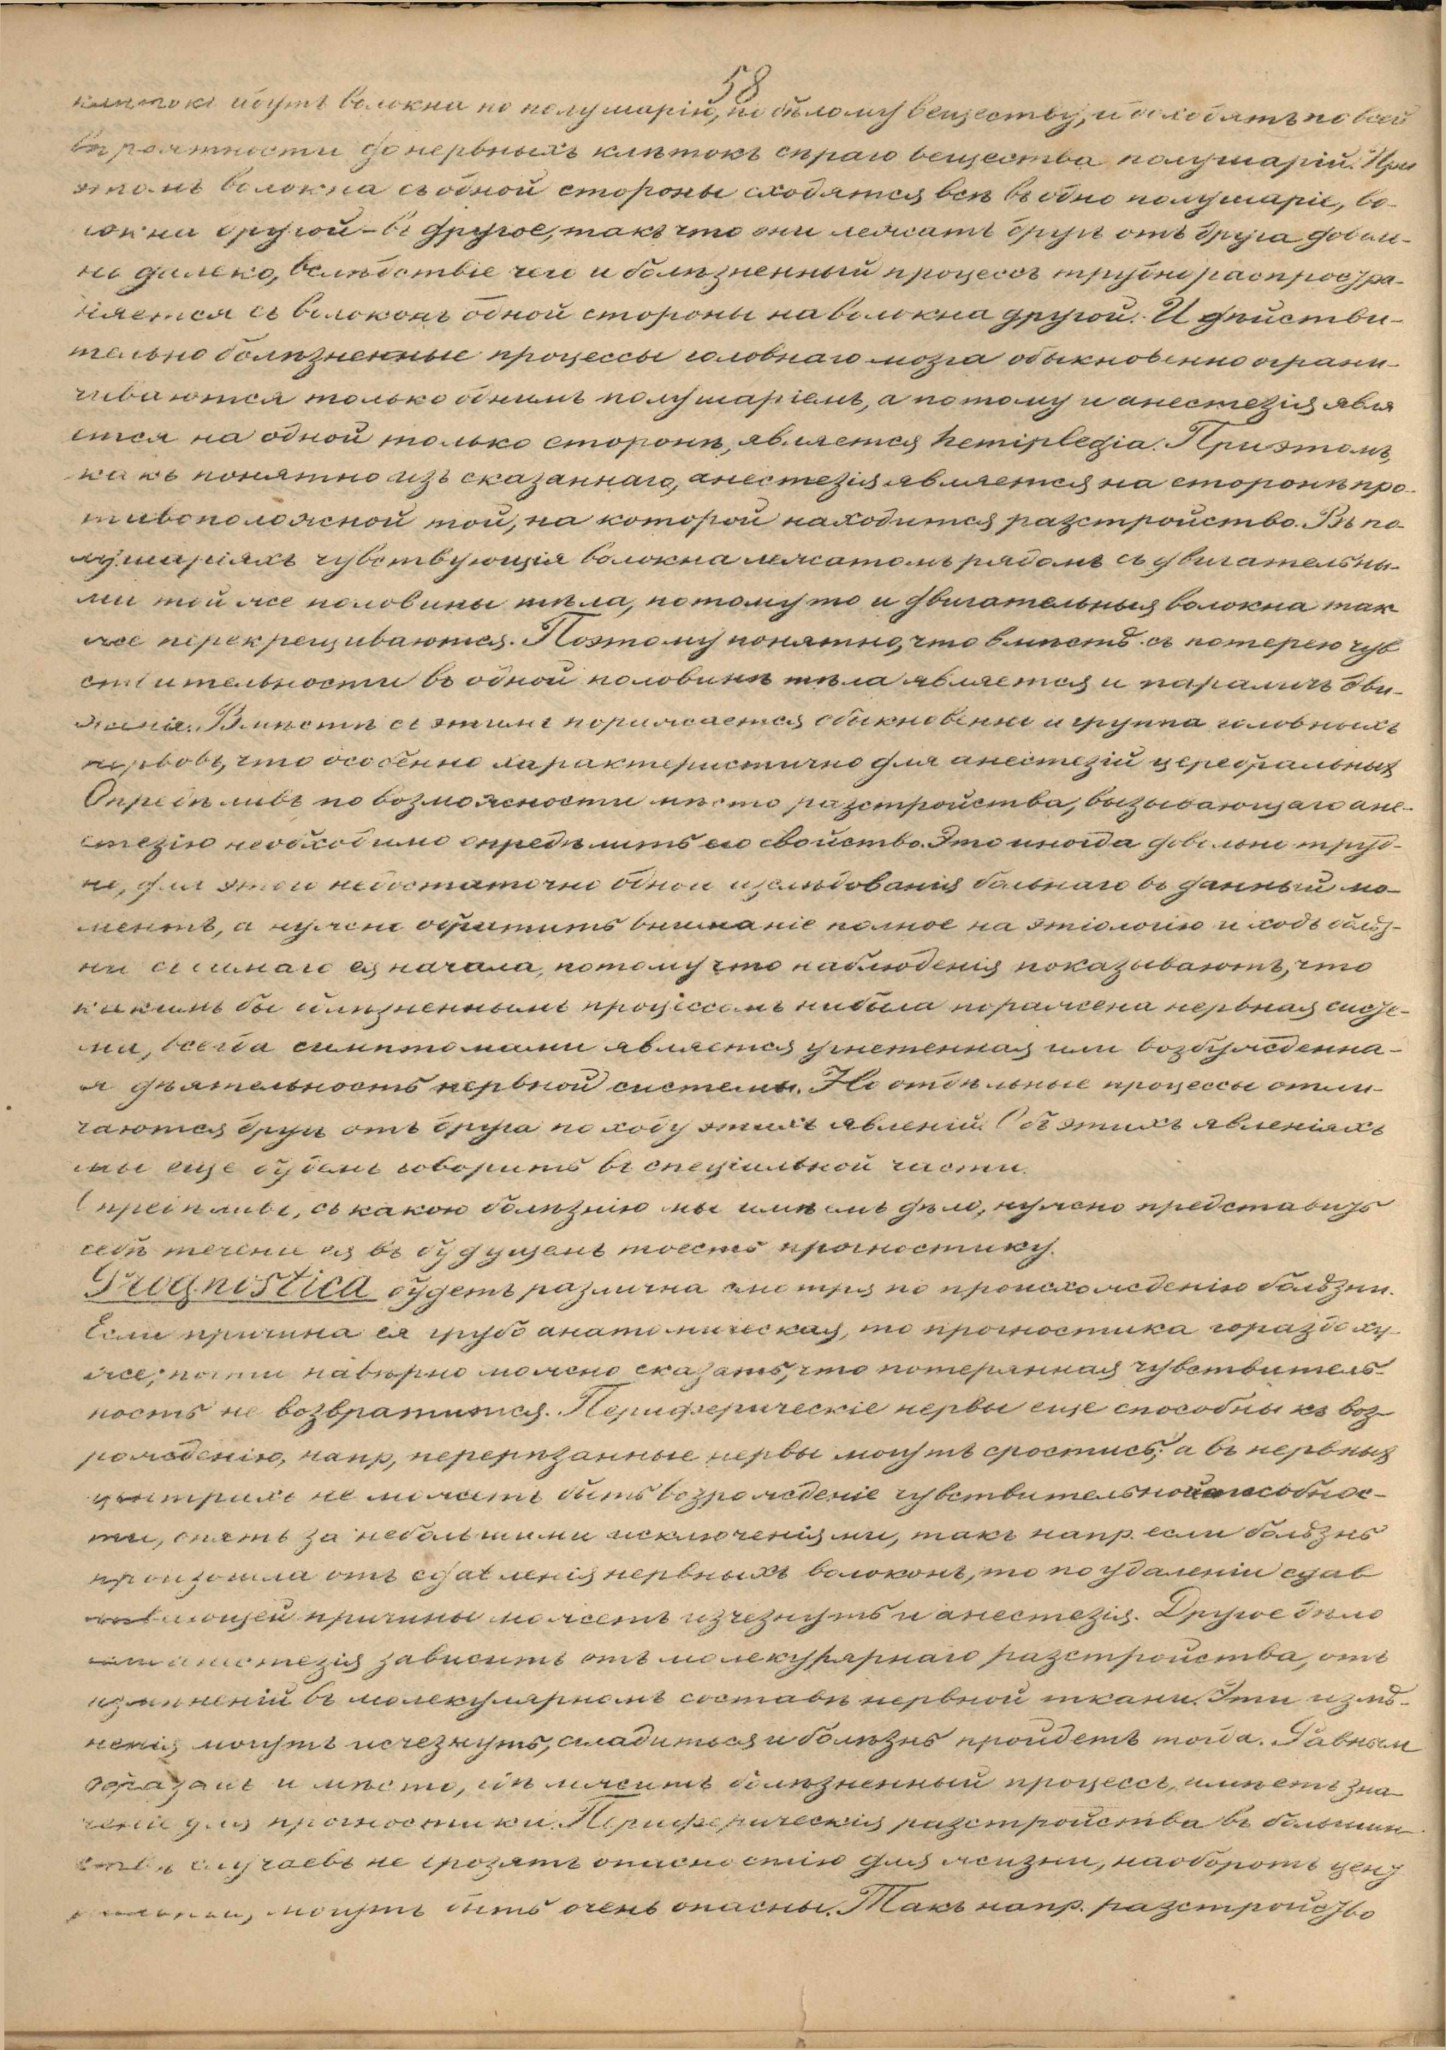 58
клѣтокъ идутъ волокна по полушарій, по бѣлому веществу, и доходятъ по всей
вѣроятности до нервныхъ клѣтокъ сѣраго вещества полушарій. При
этомъ волокна съ одной стороны сходятся всѣ въ одно полушаріе, во-
локна другой – въ другое, такъ что они лежатъ другъ отъ друга доволь-
но далеко, вслѣдствіе чего и болѣзненный процессъ трудно распростра-
няется съ волоконъ одной стороны на волокна другой. И дѣйстви-
тельно болѣзненные процессы головнаго мозга обыкновенно ограни-
чиваются только однимъ полушаріемъ, а потому и анестезія явля
ется на одной только сторонѣ, является hemiplegia. При этомъ,
какъ понятно изъ сказаннаго, анестезія является на сторонѣ про-
тивоположной той, на которой находится разстройство. Въ по-
лушаріяхъ чувствующія волокна лежатъ рядомъ съ двигательны-
ми той же половины тѣла, потому то и двигательныя волокна так
же перекрещиваются. Поэтому понятно, что вмѣстѣ съ потерею чув
ствительности въ одной половинѣ тѣла является и параличъ дви-
женія. Вмѣстѣ съ этимъ поражается обыкновенно и группа головныхъ
нервовъ, что особенно характеристично для анестезій церебральныхъ
Опредѣливъ по возможности мѣсто разстройства, вызывающаго ане-
стезію необходимо опредѣлить его свойство. Это иногда довольно труд-
но, для этого недостаточно одного изслѣдованія больнаго въ данный мо-
ментъ, а нужно обратить вниманіе полное на этіологію и ходъ болѣз-
ни съ самаго ея начала, потому что наблюденія показываютъ, что
какимъ бы болѣзненнымъ процессомъ ни была поражена нервная систе-
ма, всегда симптомами является угнетенная или возбужденна-
я дѣятельность нервной системы. Но отдѣльные процессы отли-
чаются другъ отъ друга по ходу этихъ явленій. Объ этихъ явленіяхъ
мы еще будемъ говорить въ спеціальной части.
Опредѣливъ, съ какою болѣзнію мы имѣемъ дѣло, нужно представить
себѣ теченіе ея въ будущемъ тоесть прогностику.
Prognostica будетъ различна смотря по происхожденію болѣзни.
Если причина ея грубо анатомическая, то прогностика гораздо ху-
же; почти навѣрно можно сказать, что потерянная чувствитель-
ность не возвратится. Периферическіе нервы еще способны къ воз-
рожденію, напр, перерѣзанные нервы могутъ сростись; а въ нервныхъ
центрахъ не можетъ быть возрожденіе чувствительной способнос-
ти, опять за небольшими исключеніями, такъ напр. если болѣзнь
произошла отъ сдавленія нервныхъ волоконъ, то по удаленіи сдав
ливающей причины можетъ изчезнуть и анестезія. Другое дѣло
анестезія зависитъ отъ молекулярнаго разстройства, отъ
измѣненій въ молекулярномъ составѣ нервной ткани. Эти измѣ-
ненія могутъ исчезнуть, сладиться и болѣзнь пройдетъ тогда. Равным
образомъ и мѣсто, гдѣ лежитъ болѣзненный процессъ, имѣетъ зна-
ченіе для прогностики. Периферическія разстройства въ большин-
ствѣ случаевъ не грозятъ опасностію для жизни, наоборотъ цент
ральныя, могутъ быть очень опасны. Такъ напр. разстройство